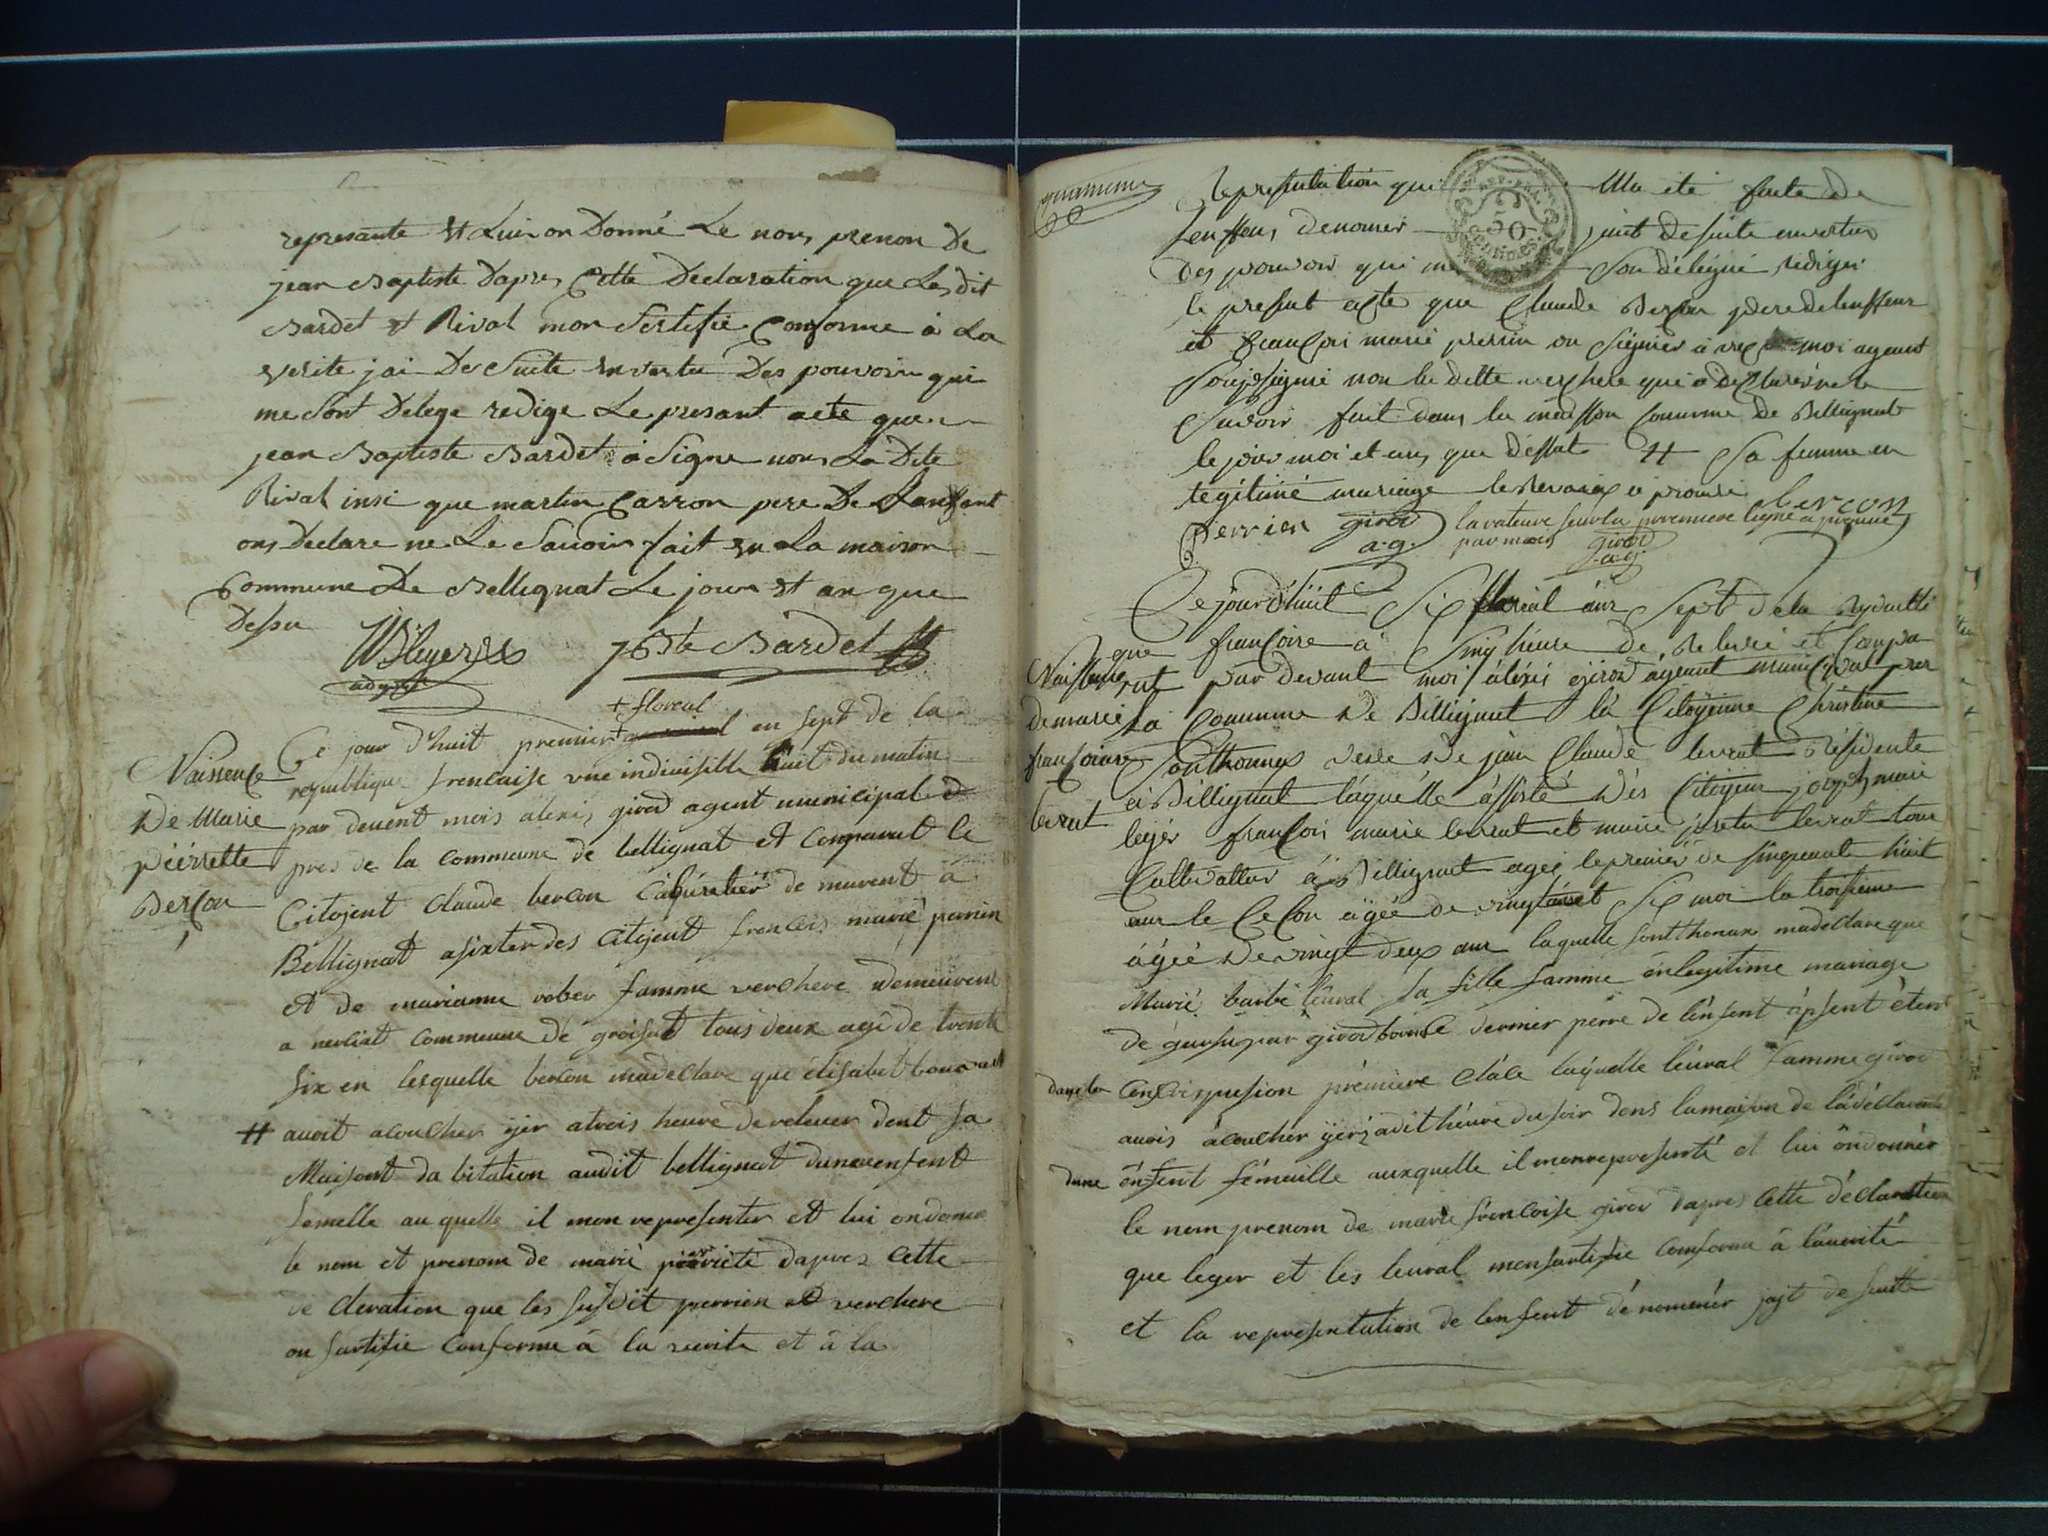 represante et Lui on Donné Le nom prenon De
jean Baptiste Dapres Cette Declaration que Lesdit
Bardet et Rival mon Sertifie Conforme à La
verite jai De Suite en vertu Des pouvoir qui
me Sont Delege redige Le presant acte que
jean Baptiste Bardet à Signe non La Dite
Rival insi que martin Carron pere De Lenfant
ons Declare ne Le Savoir fait en La maison
Commune De Bellignat Le jour et an que
Dessu
JBte Bardet
+ floreal
Ce jour d'huit premier en sept de la
Naissence
republique francaise une indivisible huit du matin
De Marie
par devent mois alexis girod agent municipal
pierrette
pres de la commune de bellignat et comparut le
Bercon
Citojent Claude bercon de murent a
Bellignat asixter des Citojent francois marie perrin
et de marianne rober famme verchere demeurent
a nerciat commune de groisiat tous deux agé de trente
six en lesquelle bercon madeclare que élisabet
# avoit acoucher yer atrois heure de relever dent sa
Maisont da bitation audit bellignat dune enfent
femelle au quelle il mon representer et lui on donner
le nom et prenom de marie pierriete dapres Cette
de cleration que les susdit perrien et verchere
on sertifie Conforme à la verite et à la
quaranme
Representation qui Ma eté faite de
lenffens denomer jait de suite envertus
Des pouvoir qui me Son délégué Rediger
le present acte que Claude Bercon pere de lenffens
et francois marie perrin on Signier avec moi agent
Soussigné non la ditte verchere qui a declaré ne le
Savoir fait dans la maison Comune De Bellignat
le jour moi et an que dessut # Sa femme en
legitime mariage le Renvoix a prouve
bercon
perrien girod la rateure seur la premiere ligne aprouve
a.g. par mois girod
a.g.
50
Ce jour d'huit Six floreal an Sept de la Republi
que francoise à Sinq heure de Relevé et Compa
Naissance rut par devant moi alexis girod ageant municipal pres
de marie la Commune De Billignat la Citoyenne Christine
francoise Sonthonnax veve De jean Claude levrat Résidente
levrat à Billignat laquelle assisté Des Citoyen joseph marie
leger francois marie levrat et marie josette levrat tous
Cultivatteur à Billignat agée le premier de Sinquante huit
ans le Second agée de vingt Six moi la troisieme
agée De vingt deux ans laquelle Sonthonax madeclare que
Marie barbe leuvrat sa fille famme en legitime mariage
de girod dernier perre de l'enfent apsent étent
dans la Conscripusion premiere Clase laquelle leuvral famme girod
avois acoucher yer adit heure du soir dens lamaison de la déclarante
dune enfent fémeille auxquelle il monrepresenté et lui ondonner
le nom prenom de marie francoise girod dapres cette déclaration
que leger et les leuvral monsertifie Conforme à lavérité
et la representation de lenfent dénomenér jajt de suitte